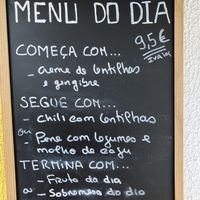 MENU DO DIA
9,5€
IVA inc.
COMEÇA COM...
- creme de lentilhas
e gengibre
SEGUE COM...
- Chili com lentilhas
ou
- Penne com legumes e
molho de caju
TERMINA COM...
- Fruta do dia
ou - Sobremesa do dia